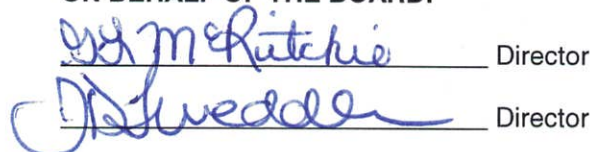 ON BEHALF OF THE BOARD:
McRitchie Director
Director